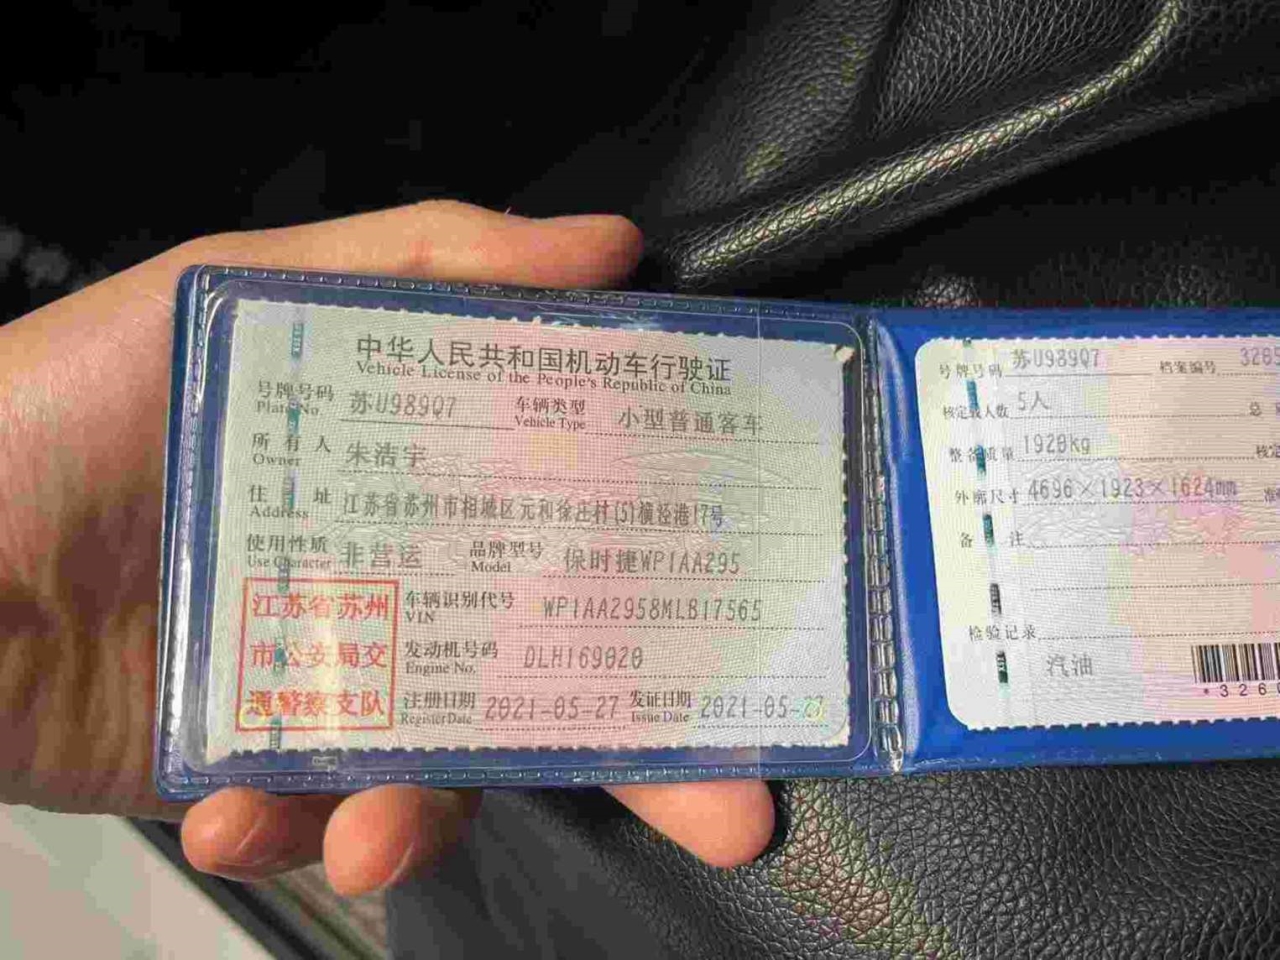 中华人民共和国机动车行驶证
Vehicle License of the People's Republic of China
号牌号码 苏U989Q7 车辆类型 小型普通客车
Plate No. Vehicle Type
所有人 朱浩宇
Owner
住址 江苏省苏州市相城区元和徐庄村(5)横泾港17号
Address
使用性质 非营运 品牌型号 保时捷WP1AA295
Use Character Model
江苏省苏州
市公安局交
通警察支队
车辆识别代号 WP1AA2958MLB17565
VIN
发动机号码 DLH169020
Engine No.
注册日期 2021-05-27 发证日期 2021-05-27
Register Date Issue Date
号牌号码 苏U989Q7 档案编号 326
核定载人数 5人 总
整备质量 1920kg 核定
外廓尺寸 4696×1923×1624mm
备注
检验记录
汽油
*326